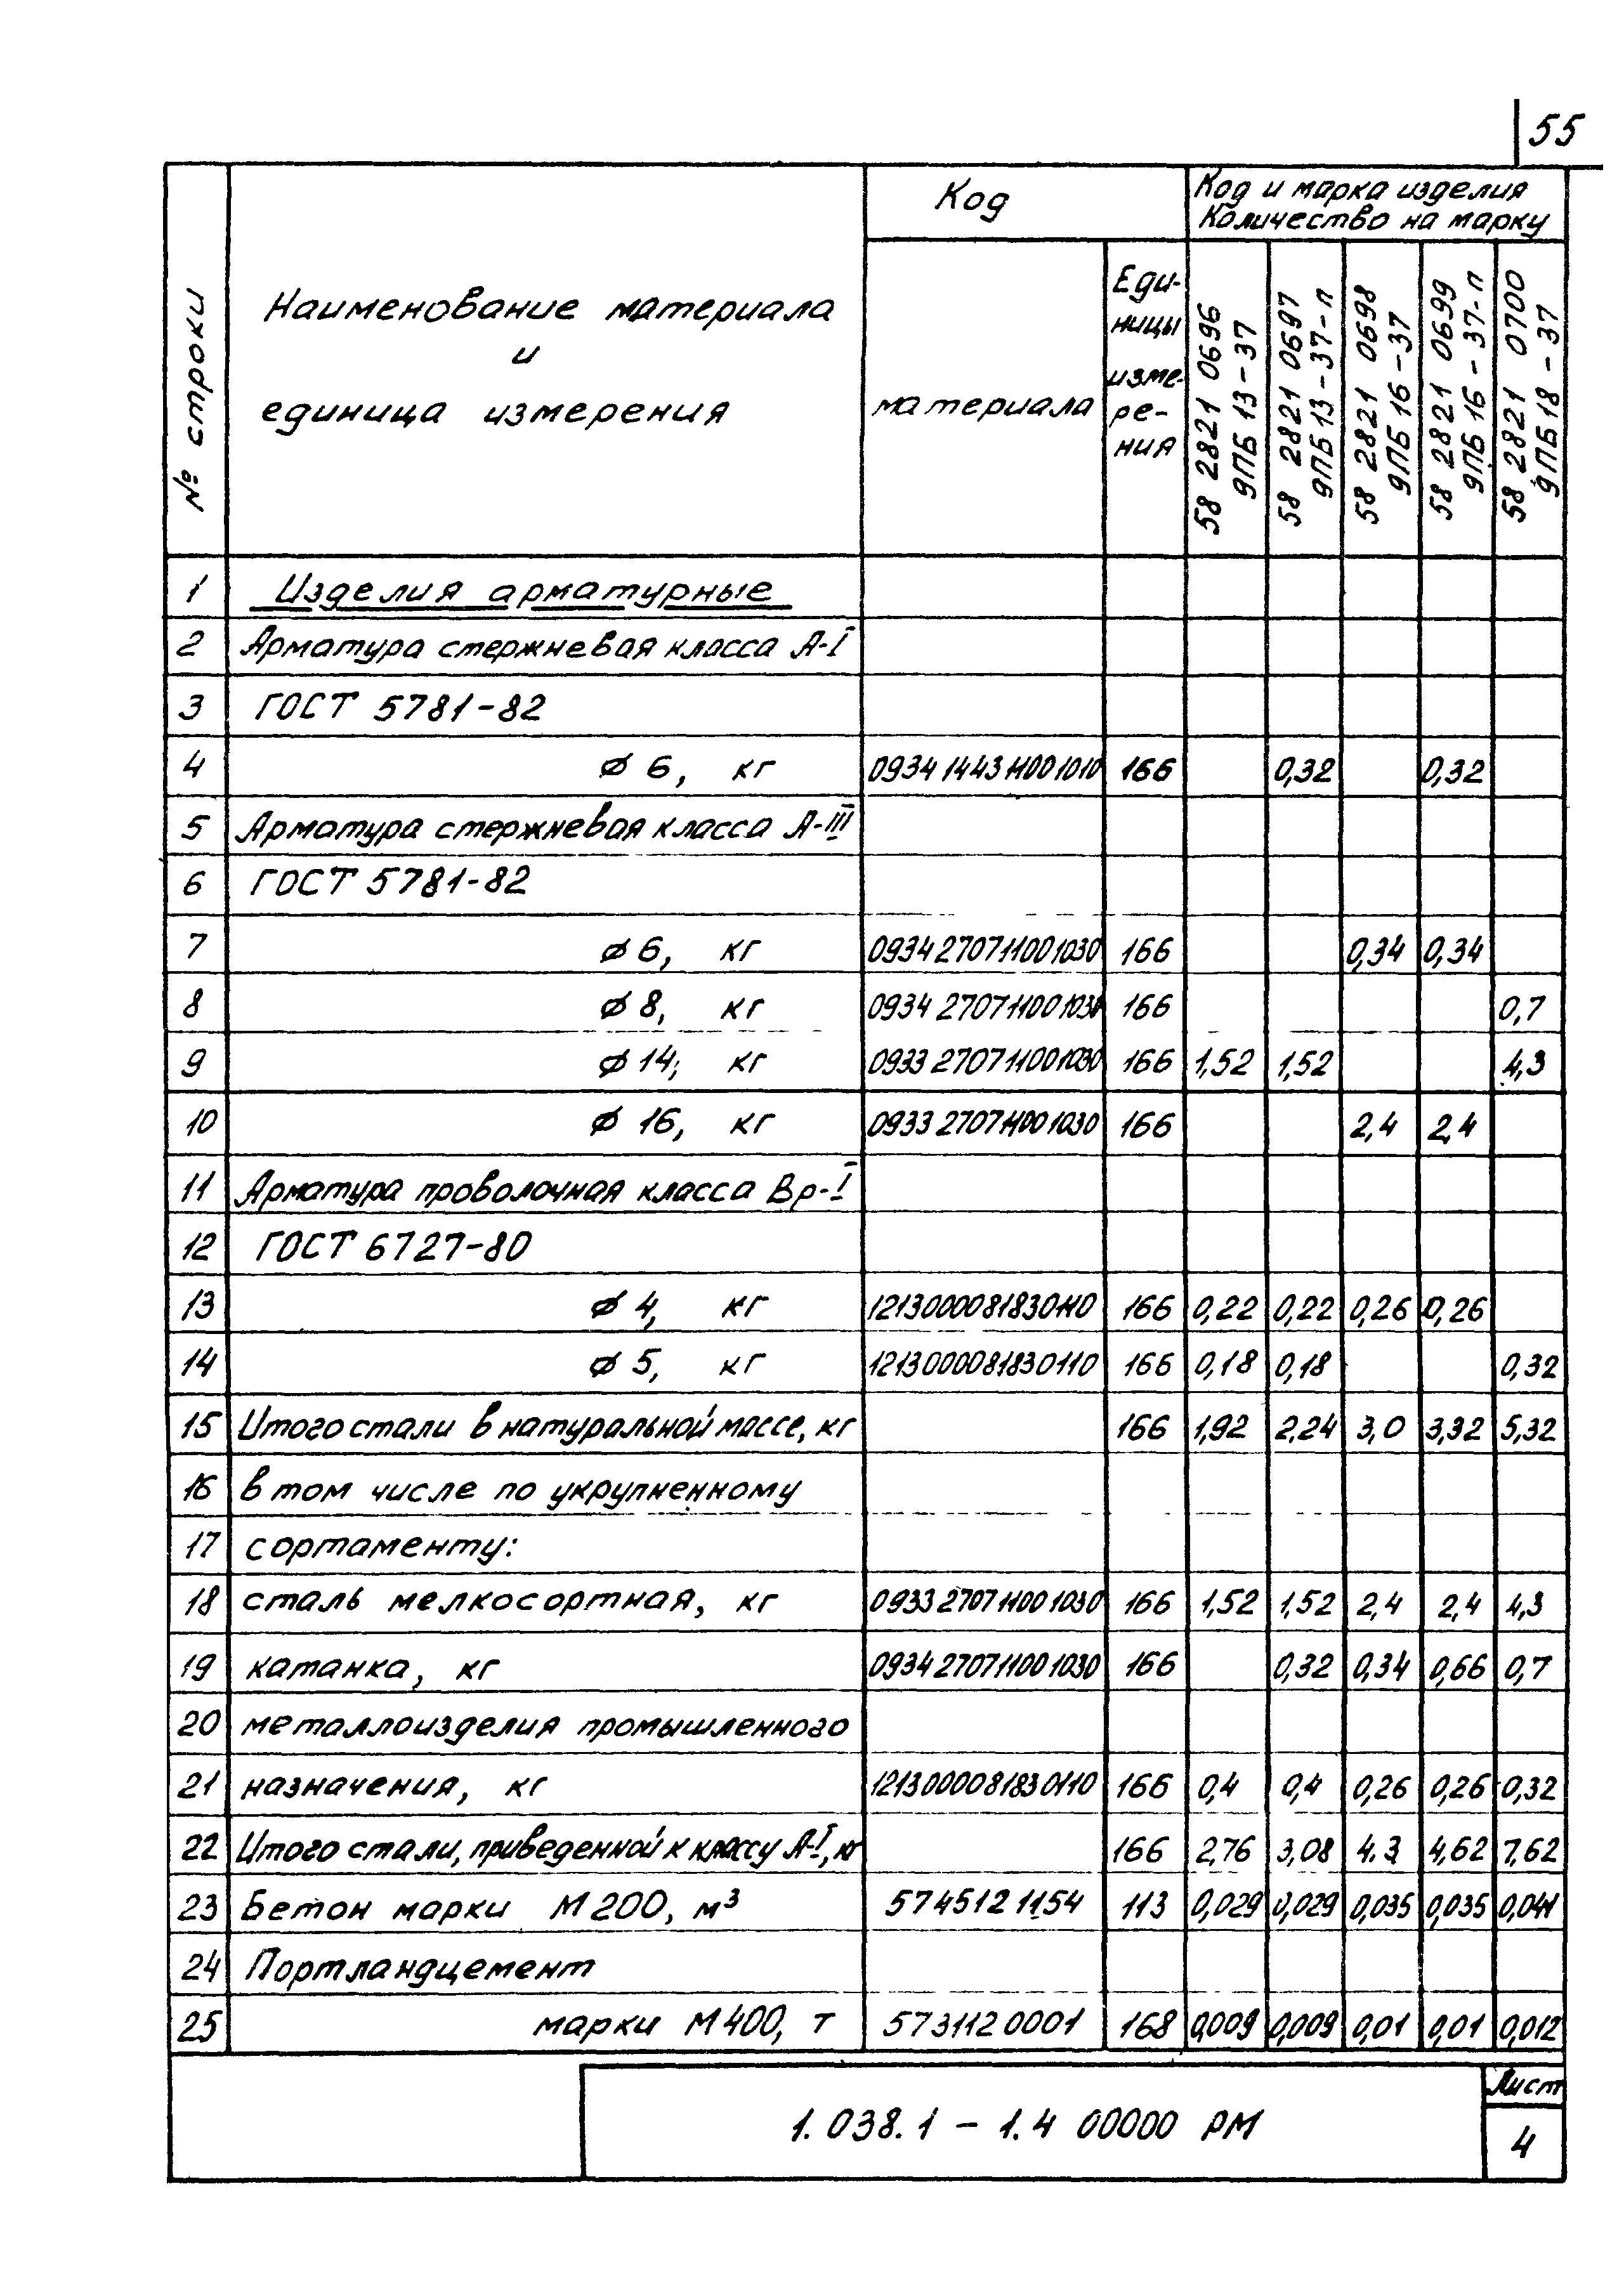 55
№ строки
Наименование материала
и
единица измерения
Код
материала
Еди-
ницы
изме-
ре-
ния
Код и марка изделия
Количество на марку
58 2821 0696
9ПБ 13-37
58 2821 0697
9ПБ 13-37-п
58 2821 0698
9ПБ 16-37
58 2821 0699
9ПБ 16-37-п
58 2821 0700
9ПБ 18-37
1 Изделия арматурные
2 Арматура стержневая класса А-I
3 ГОСТ 5781-82
4 ⌀ 6, кг 0934 1443 1100 1010 166 0,32 0,32
5 Арматура стержневая класса А-III
6 ГОСТ 5781-82
7 ⌀ 6, кг 0934 2707 1100 1030 166 0,34 0,34
8 ⌀ 8, кг 0934 2707 1100 1030 166 0,7
9 ⌀ 14, кг 0933 2707 1100 1030 166 1,52 1,52 4,3
10 ⌀ 16, кг 0933 2707 1100 1030 166 2,4 2,4
11 Арматура проволочная класса Вр-I
12 ГОСТ 6727-80
13 ⌀ 4, кг 1213000081830110 166 0,22 0,22 0,26 0,26
14 ⌀ 5, кг 1213000081830110 166 0,18 0,18 0,32
15 Итого стали в натуральной массе, кг 166 1,92 2,24 3,0 3,32 5,32
16 в том числе по укрупненному
17 сортаменту:
18 сталь мелкосортная, кг 0933 2707 1100 1030 166 1,52 1,52 2,4 2,4 4,3
19 катанка, кг 0934 2707 1100 1030 166 0,32 0,34 0,66 0,7
20 металлоизделия промышленного
21 назначения, кг 1213000081830110 166 0,4 0,4 0,26 0,26 0,32
22 Итого стали, приведенной к классу А-I, кг 166 2,76 3,08 4.3 4,62 7,62
23 Бетон марки М200, м³ 574512 1154 113 0,029 0,029 0,035 0,035 0,041
24 Портландцемент
25 марки М400, т 573112 0001 168 0,009 0,009 0,01 0,01 0,012
1.038.1 - 1.4 00000 РМ
Лист
4